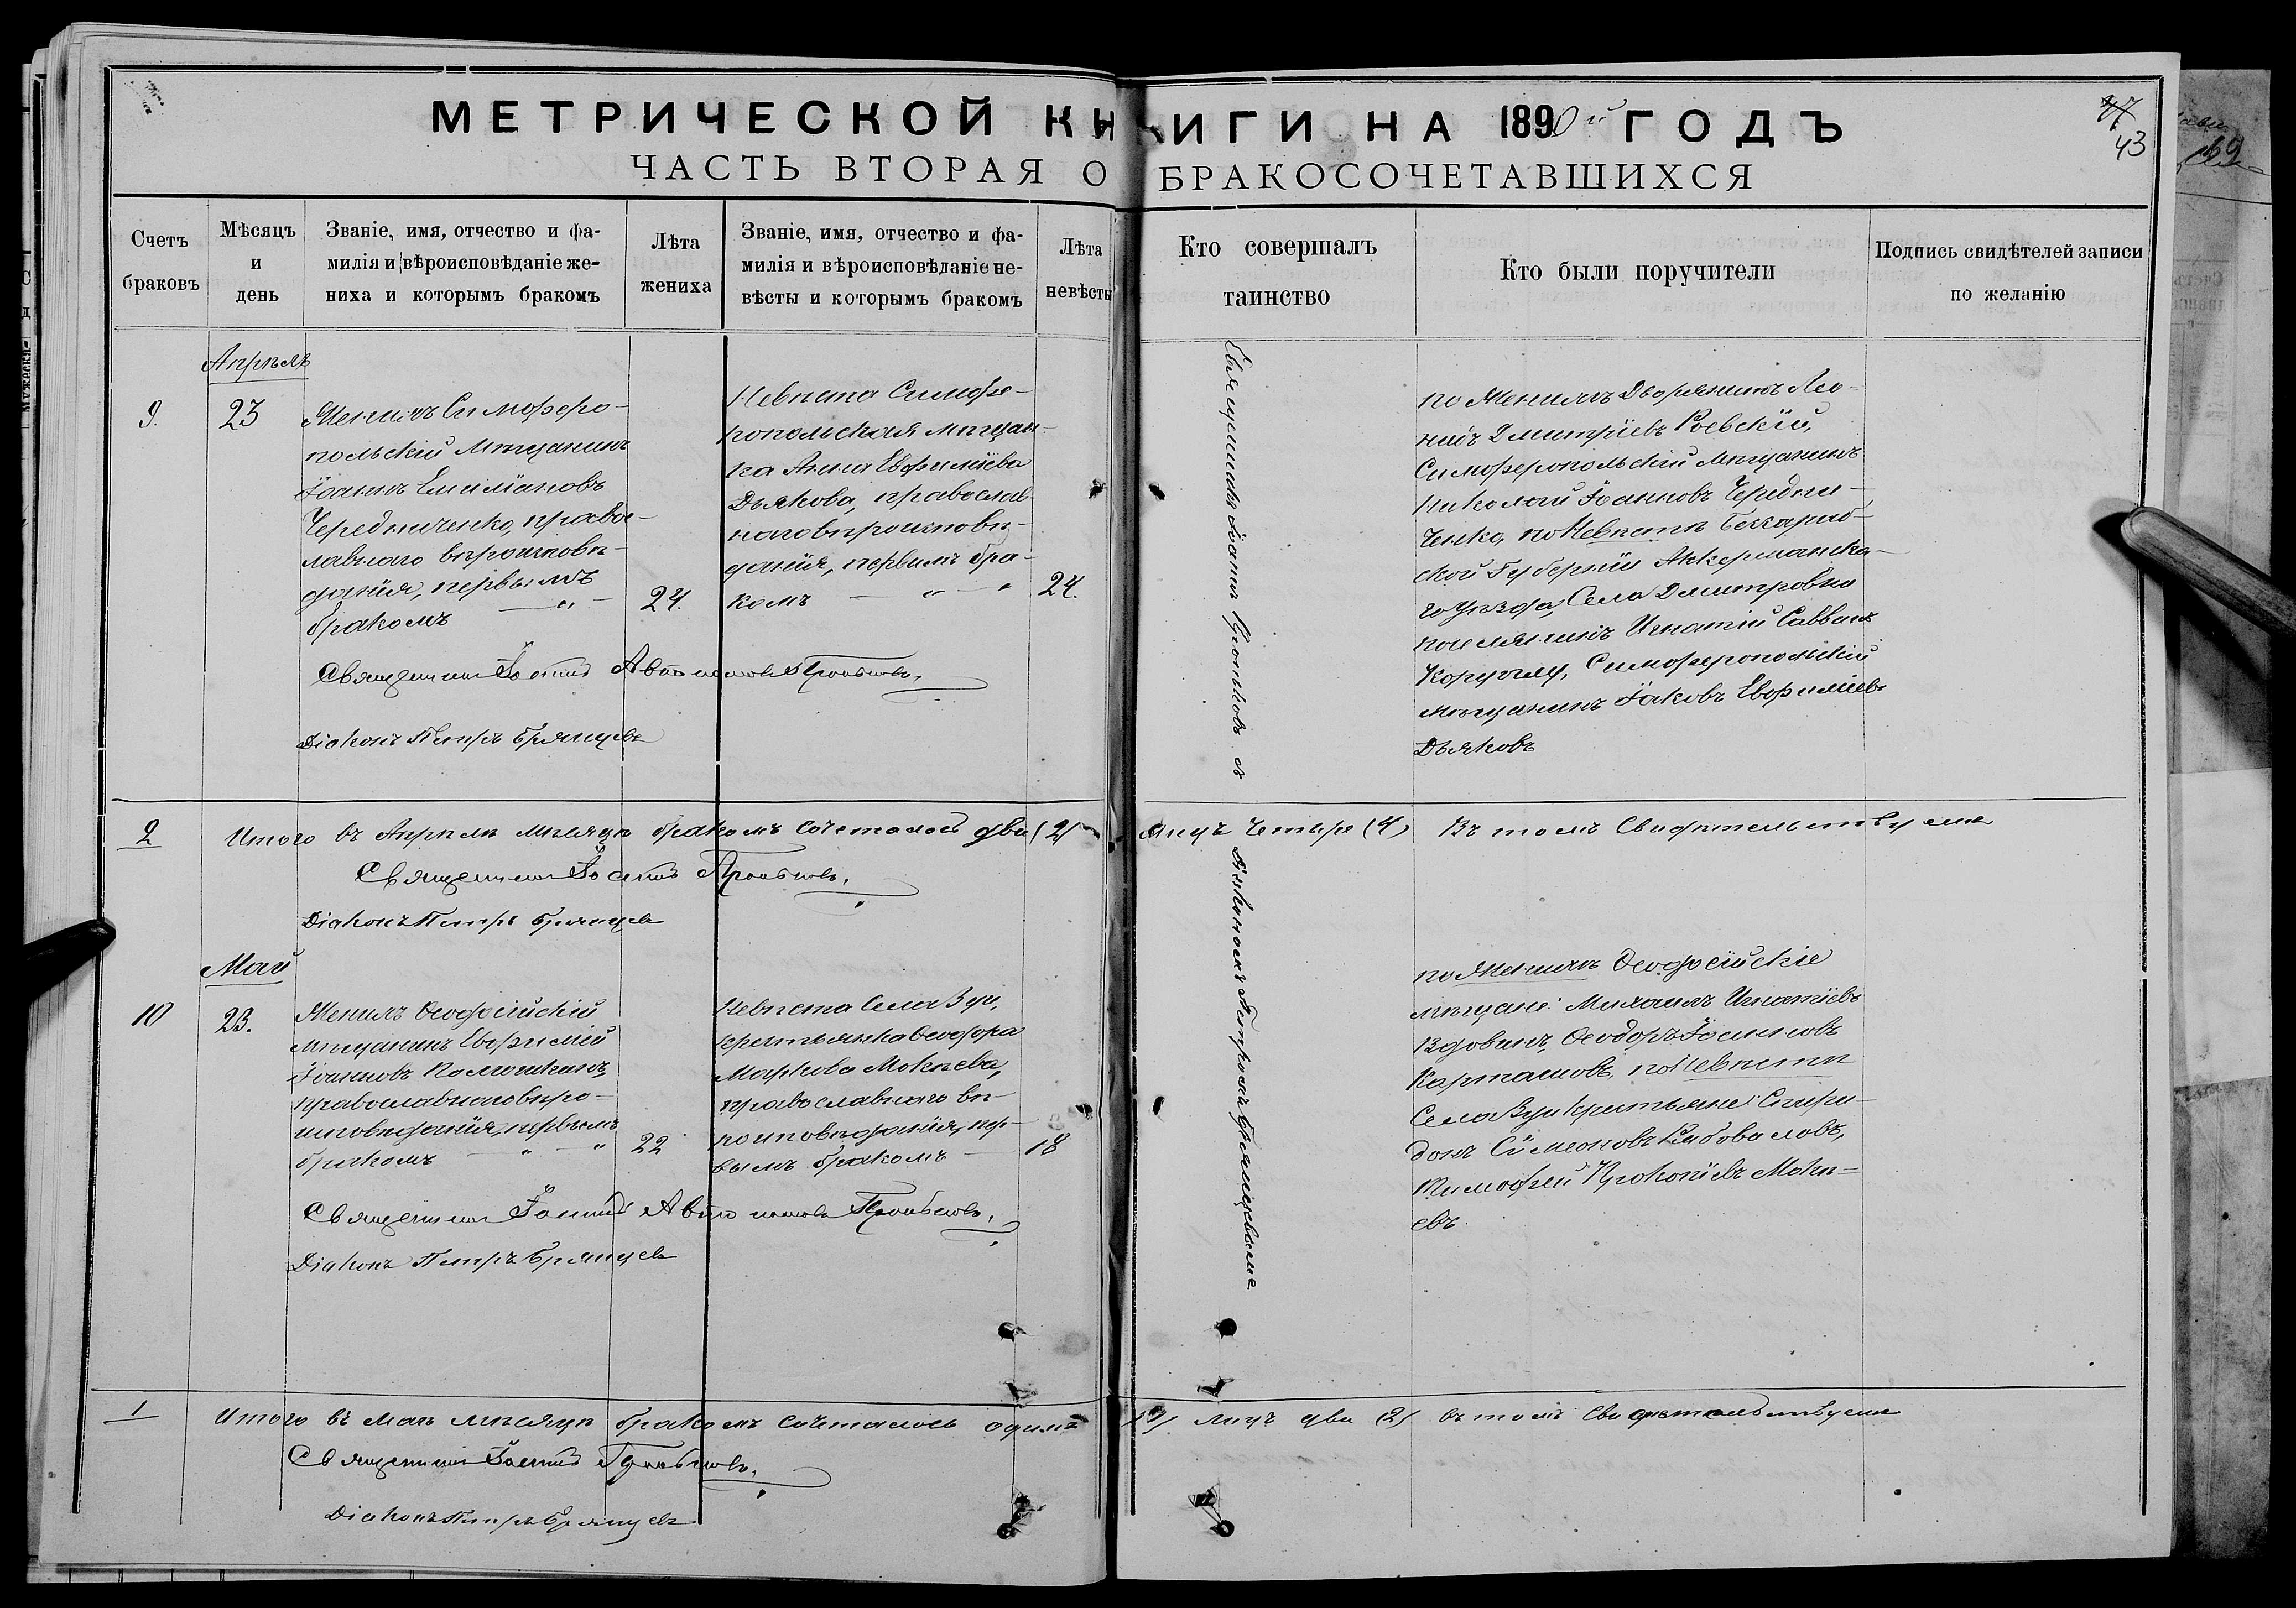 МЕТРИЧЕСКОЙ КНИГИ НА 1890й ГОДЪ
43
ЧАСТЬ ВТОРАЯ О БРАКОСОЧЕТАВШИХСЯ
Счетъ
браковъ
Мѣсяцъ
и
день
Званіе, имя, отчество и фа-
милія и вѣроисповѣданіе же-
ниха и которымъ бракомъ
Лѣта
жениха
Званіе, имя, отчество и фа-
милія и вѣроисповѣданіе не-
вѣсты и которымъ бракомъ
Лѣта
невѣсты
Кто совершалъ
таинство
Кто были поручители
Подпись свидѣтелей записи
по желанію
Апрѣль
9.
23
Женихъ Симферо-
польскій мѣщанинъ
Іоаннъ Емиліановъ
Чередниченко, правос-
лавнаго вѣроисповѣ-
данія, первымъ
бракомъ
24.
Невѣста Симфе-
ропольская мѣщан-
ка Анна Евфиміева
Дьякова, православ-
наго вѣроисповѣ-
данія, первымъ бра-
комъ
24.
Священникъ Іоаннъ
съ діакономъ Петромъ Брянцевымъ
по Женихѣ Дворянинъ Лео-
нидъ Дмитріевъ Роевскій,
Симферопольскій мѣщанинъ
Николай Іоанновъ Чередни-
ченко, по Невѣстѣ Бессараб-
ской Губерніи Аккерманска-
го уѣзда, Села Дмитровка
поселянинъ Игнатій Саввинъ
Симферопольскій
мѣщанинъ Іаковъ Евфиміевъ
Дьяковъ
Священникъ
Діаконъ Петръ Брянцевъ
2
Итого въ Апрѣлѣ мѣсяцѣ бракомъ сочеталось два (2) лицъ четыре (4) Въ томъ свидѣтельствуемъ
Священникъ
Діаконъ Петръ Брянцевъ
Май
10
23.
Женихъ Ѳеодосійскій
мѣщанинъ Евфимій
Іоанновъ
православнаго вѣро-
исповѣданія, первымъ
бракомъ
22
Невѣста Села Зуи,
крестьянка Ѳеодора
Маркова Мокѣева,
православнаго вѣ-
роисповѣданія, пер-
вымъ бракомъ
18
по Женихѣ Ѳеодосійскіе
мѣщане: Михаилъ Игнатіевъ
Вдовинъ, Ѳеодоръ Іоанновъ
Карташовъ, по Невѣстѣ
Села Зуи крестьяне: Спири-
донъ Симеоновъ
Тимофей Прокопіевъ Мокѣ-
евъ.
Священникъ
Діаконъ Петръ Брянцевъ
1
Итого въ маѣ мѣсяцѣ бракомъ сочеталось одинъ (1) лицъ два (2) въ томъ свидѣтельствуемъ
Священникъ
Діаконъ Петръ Брянцевъ